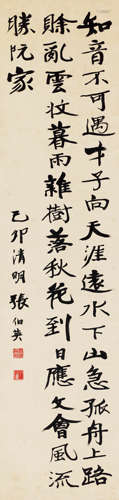 知音不可遇才子向天涯遠水下山急孤舟上路
賒亂雲收暮雨雜樹落秋花到日應文會風流
勝阮家
乙卯清明張伯英